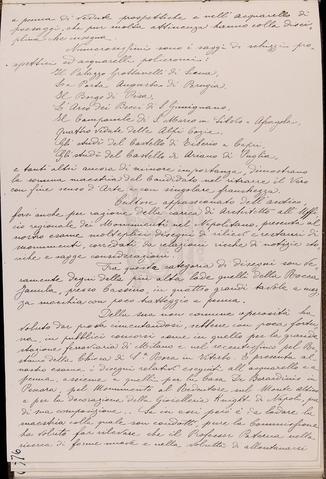 a penna di vedute prospettiche e nell'acquarello di
paesaggi, che pur molta attinenza hanno colla disci-
plina che insegna.
Numerosissimi sono i saggi di schizzi pro-
spettici ed acquarelli policromi:
Il Palazzo Grottanelli di Siena,
La Porta Augusta di Perugia,
Il Borgo di Pisa,
L'Arco dei Becci di S. Gimignano,
Il Campanile di S. Marco in
Quattro vedute delle Alpi Cozie,
Gli studi del Castello di Tiberio a Capri,
Gli studi del Castello di Ariano di Puglia,
e tanti altri ancora di minore importanza, dimostrano
la somma maestria del Candidato nel ritrarre il Vero
con fine senso d'Arte e con singolare franchezza.
Cultore appassionato dell'antico,
fors'anche per ragione della carica di Architetto all'Uffi-
cio regionale dei Monumenti nel Napoletano, presenta al
nostro esame molteplici disegni di rilievi e restauri di
monumenti, corredati da relazioni ricche di notizie sto-
riche e sagge considerazioni.
Fra questa categoria di disegni son ve-
ramente degni della più alta lode quelli della Rocca
Janula, presso Cassino, in quattro grandi tavole a mez-
za macchia con poco tratteggio a penna.
Della sua non comune operosità ha
voluto dar prova cimentandosi, sebbene con poca fortu-
na, in pubblici concorsi come in quello per la grande
stazione ferroviaria di Milano e nel
della Chiesa di S.ta Rosa in Viterbo. E presenta al
nostro esame i disegni relativi eseguiti all'acquarello e a
penna, assieme a quelli per la Casa de Berardinis in
Pescara, pel Monumento al Redentore sul Monte
e per la decorazione della Gioielleria Knight di Napoli, pur
di sua composizione... Se in così però è da lodare la
maestria colla quale son condotti, pure la Commissione
ha voluto far rilevare che il Professor Paterna nella
ricerca di forme nuove e nella voluttà di allontanarsi
376